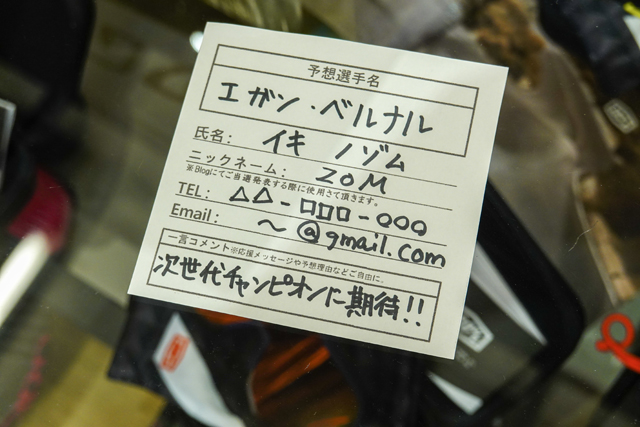 予想選手名
エガン・ベルナル
氏名: イキ ノゾム
ニックネーム: ZOM
※Blogにてご当選発表する際に使用させて頂きます。
TEL: △△-□□□-○○○
Email: 〜@gmail.com
一言コメント※応援メッセージや予想理由などご自由に。
次世代チャンピオンに期待!!